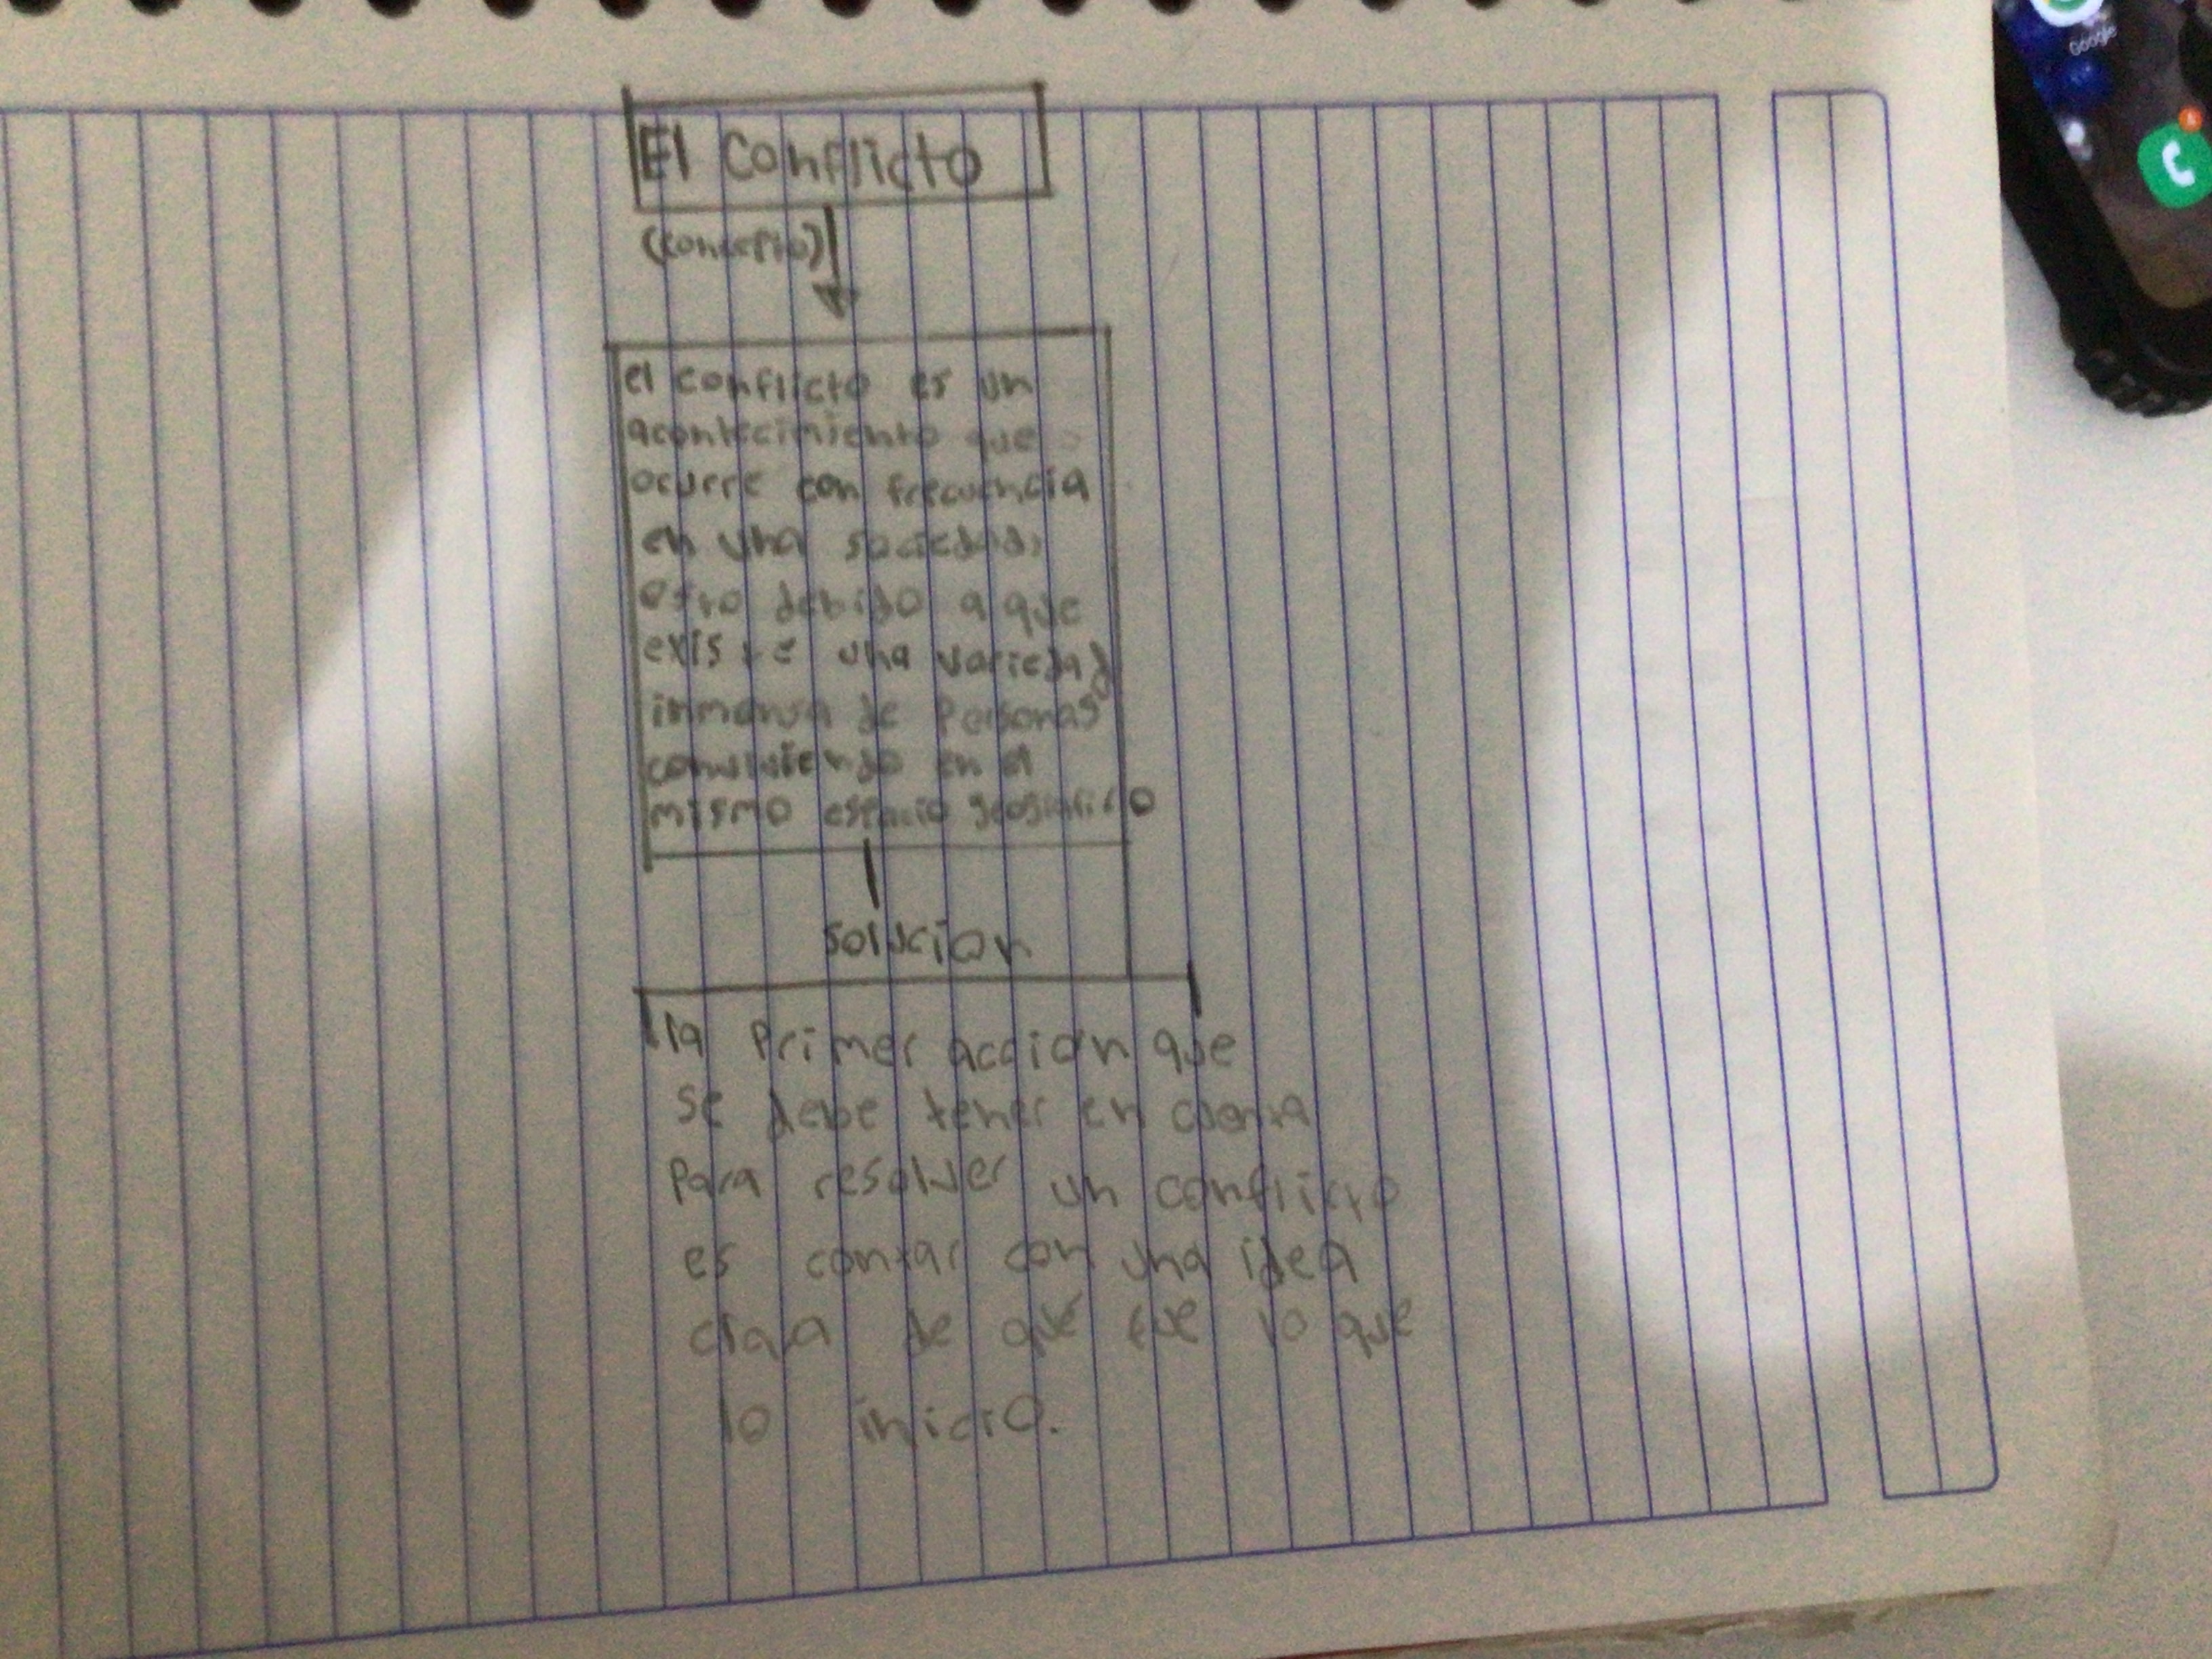 Google
El Conflicto
(concepto)
el conflicto es un
acontecimiento que
ocurre con frecuencia
en una sociedad,
esto debido a que
existe una variedad
inmensa de Personas
conviviendo en el
mismo espacio geografico
solucion
la Primer accion que
se debe tener en cuenta
Para resolver un conflicto
es contar con una idea
clara de que fue lo que
lo inicio.